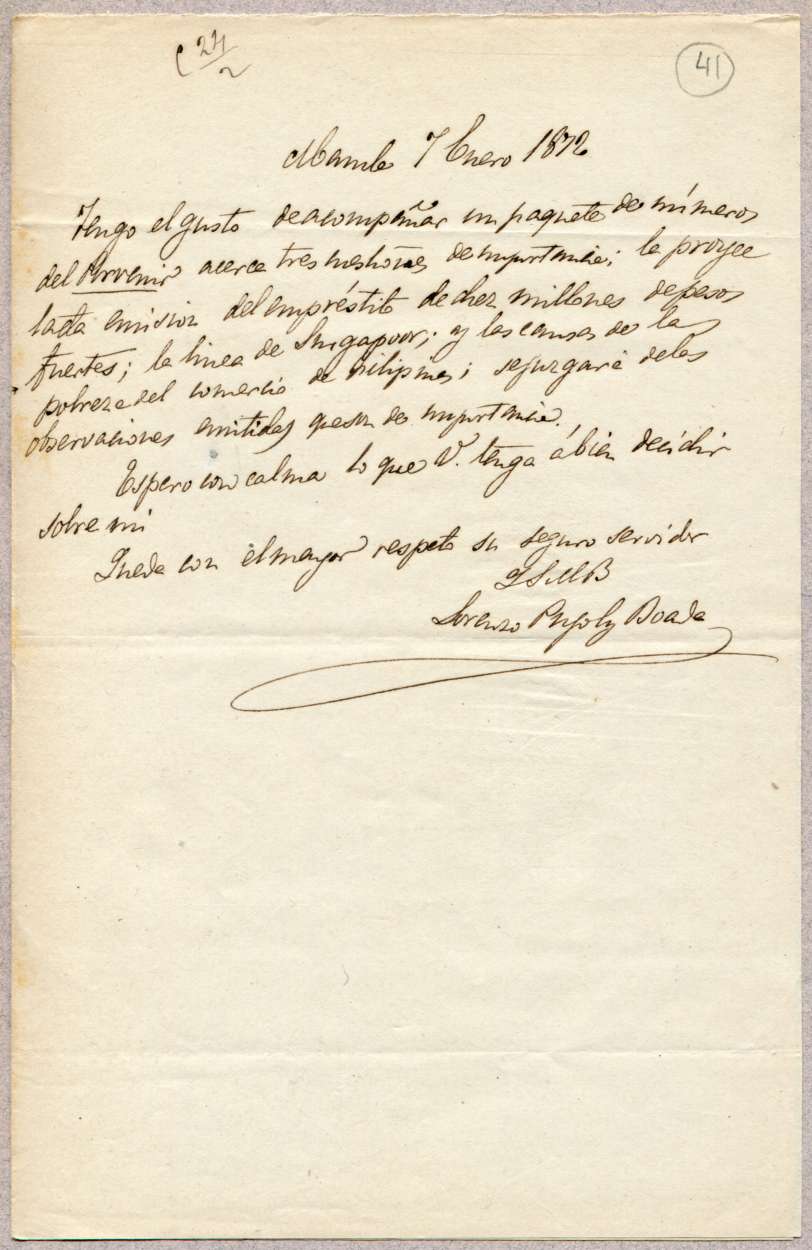 C 24/2
41
Manila 7 Enero 1872
Tengo el gusto de acompañar un paquete de números
del Porvenir acerca tres cuestiones de importancia; la proyec
tada emision del empréstito de diez millones de pesos
fuertes; la linea de Singapoor; y las causas de la
pobreza del comercio de Filipinas; se juzgará de las
observaciones emitidas que son de importancia.
Espero con calma lo que V. tenga á bien decidir
sobre mi
Queda con el mayor respeto su seguro servidor
QSMB
Lorenzo Pujol y Boada